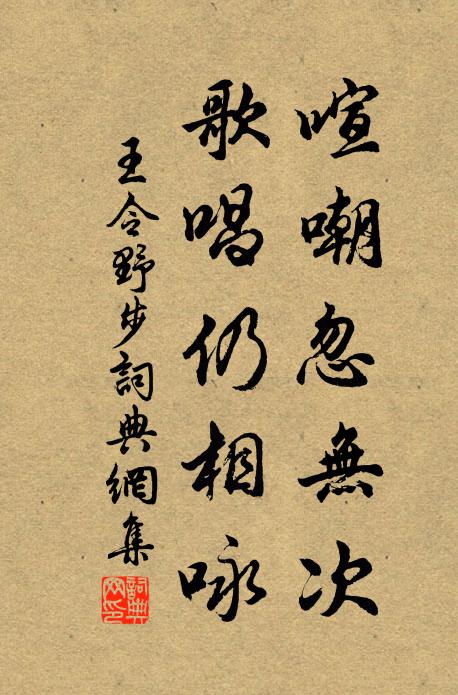 喧嘲忽無次
歌唱仍相咏
王令野步詞典網集
詞典网印